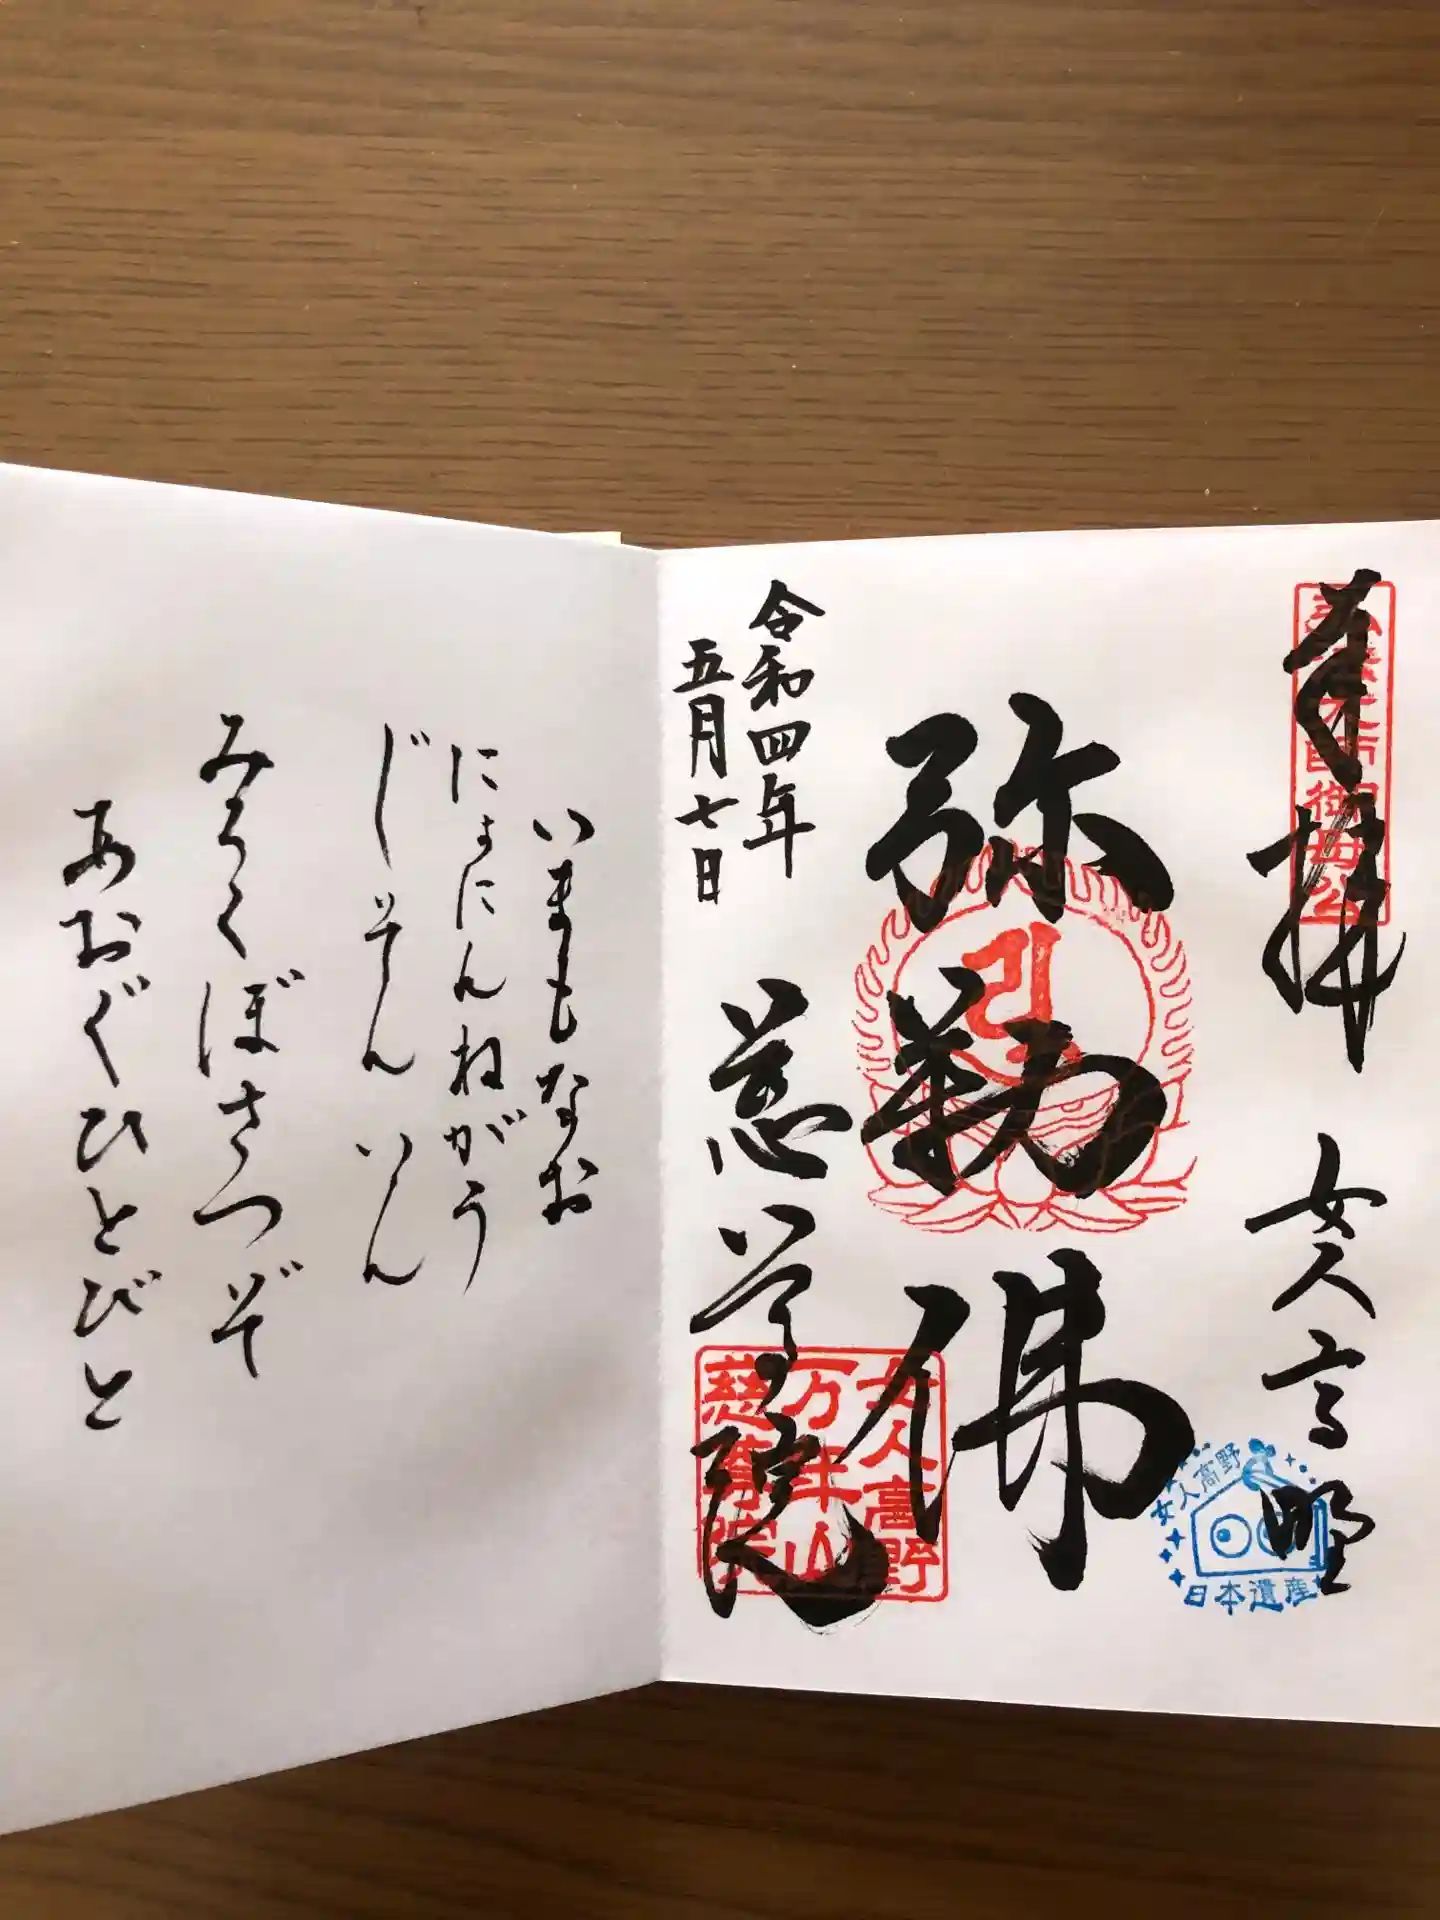 奉拝 女人高野
弘法大師御母公
弥勒佛
令和四年
五月七日
慈尊院
女人高野
万年山
慈尊院
女人高野
日本遺産
いまもなお
にょにんねがう
じそんいん
みろくぼさつぞ
あおぐひとびと